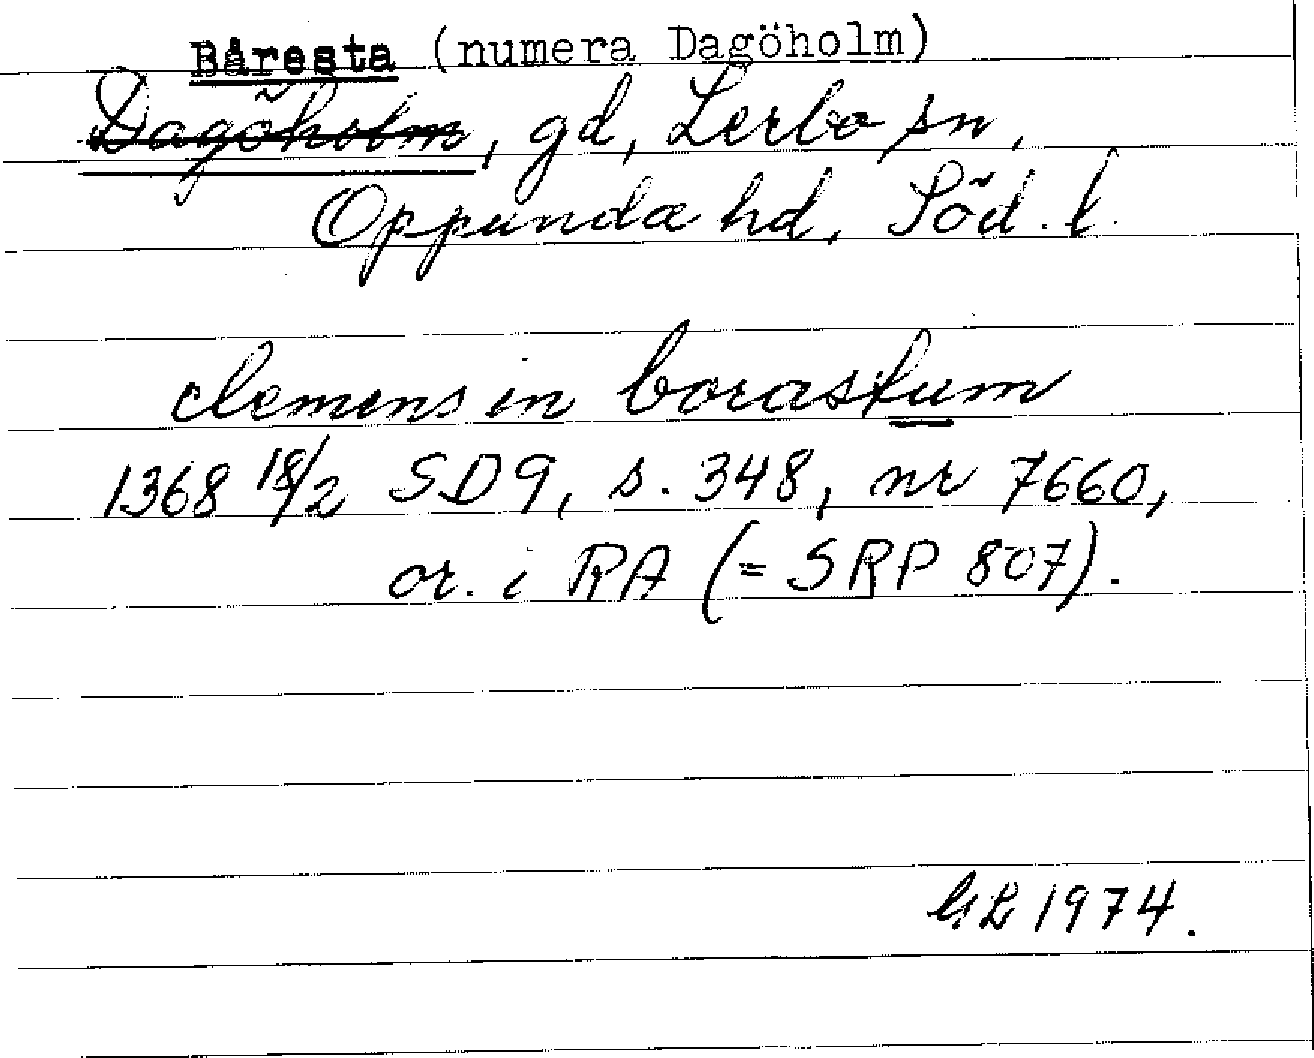 Båresta (numera Dagöholm)
Dagöholm, gd, Lerbo sn,
Oppunda hd, Söd. l.
clemens in borastum
1368 18/2 SD9, s. 348, nr 7660,
or. i RA (= SRP 807).
GL 1974.